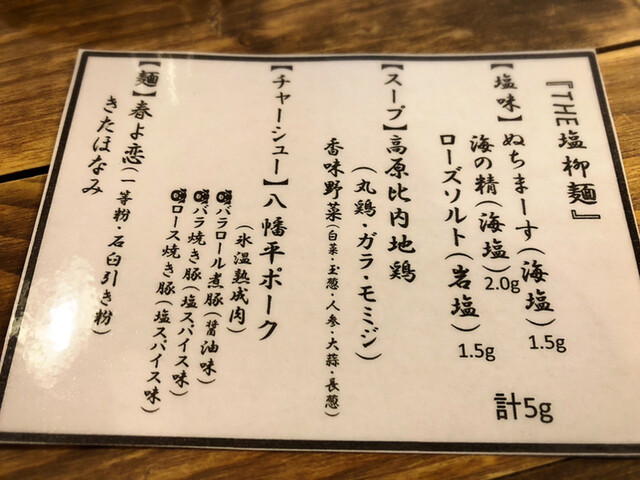 『THE塩柳麺』
【塩味】ぬちまーす（海塩）1.5g
海の精（海塩）2.0g
ローズソルト（岩塩）1.5g
計5g
【スープ】高原比内地鶏
（丸鶏・ガラ・モミジ）
香味野菜（白菜・玉葱・人参・大蒜・長葱）
【チャーシュー】八幡平ポーク
（氷温熟成肉）
バラロール煮豚（醤油味）
バラ焼き豚（塩スパイス味）
ロース焼き豚（塩スパイス味）
【麺】春よ恋（一等粉・石臼引き粉）
きたほなみ